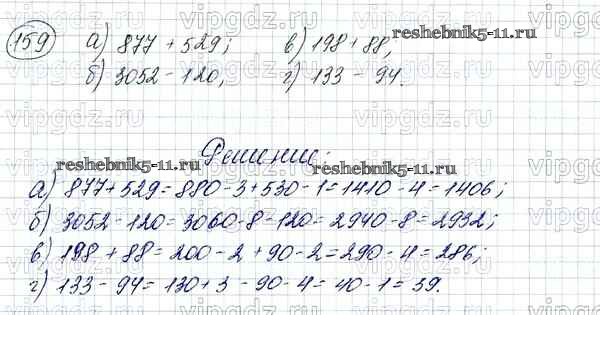 159 а) 877 + 529; в) 198 + 88,
б) 3052 - 120, г) 133 - 94.
Решение:
а) 877 + 529 = 880 - 3 + 530 - 1 = 1410 - 4 = 1406;
б) 3052 - 120 = 3060 - 8 - 120 = 2940 - 8 = 2932;
в) 198 + 88 = 200 - 2 + 90 - 2 = 290 - 4 = 286;
г) 133 - 94 = 130 + 3 - 90 - 4 = 40 - 1 = 39.
reshebnik5-11.ru
reshebnik5-11.ru
reshebnik5-11.ru
vipgdz.ru